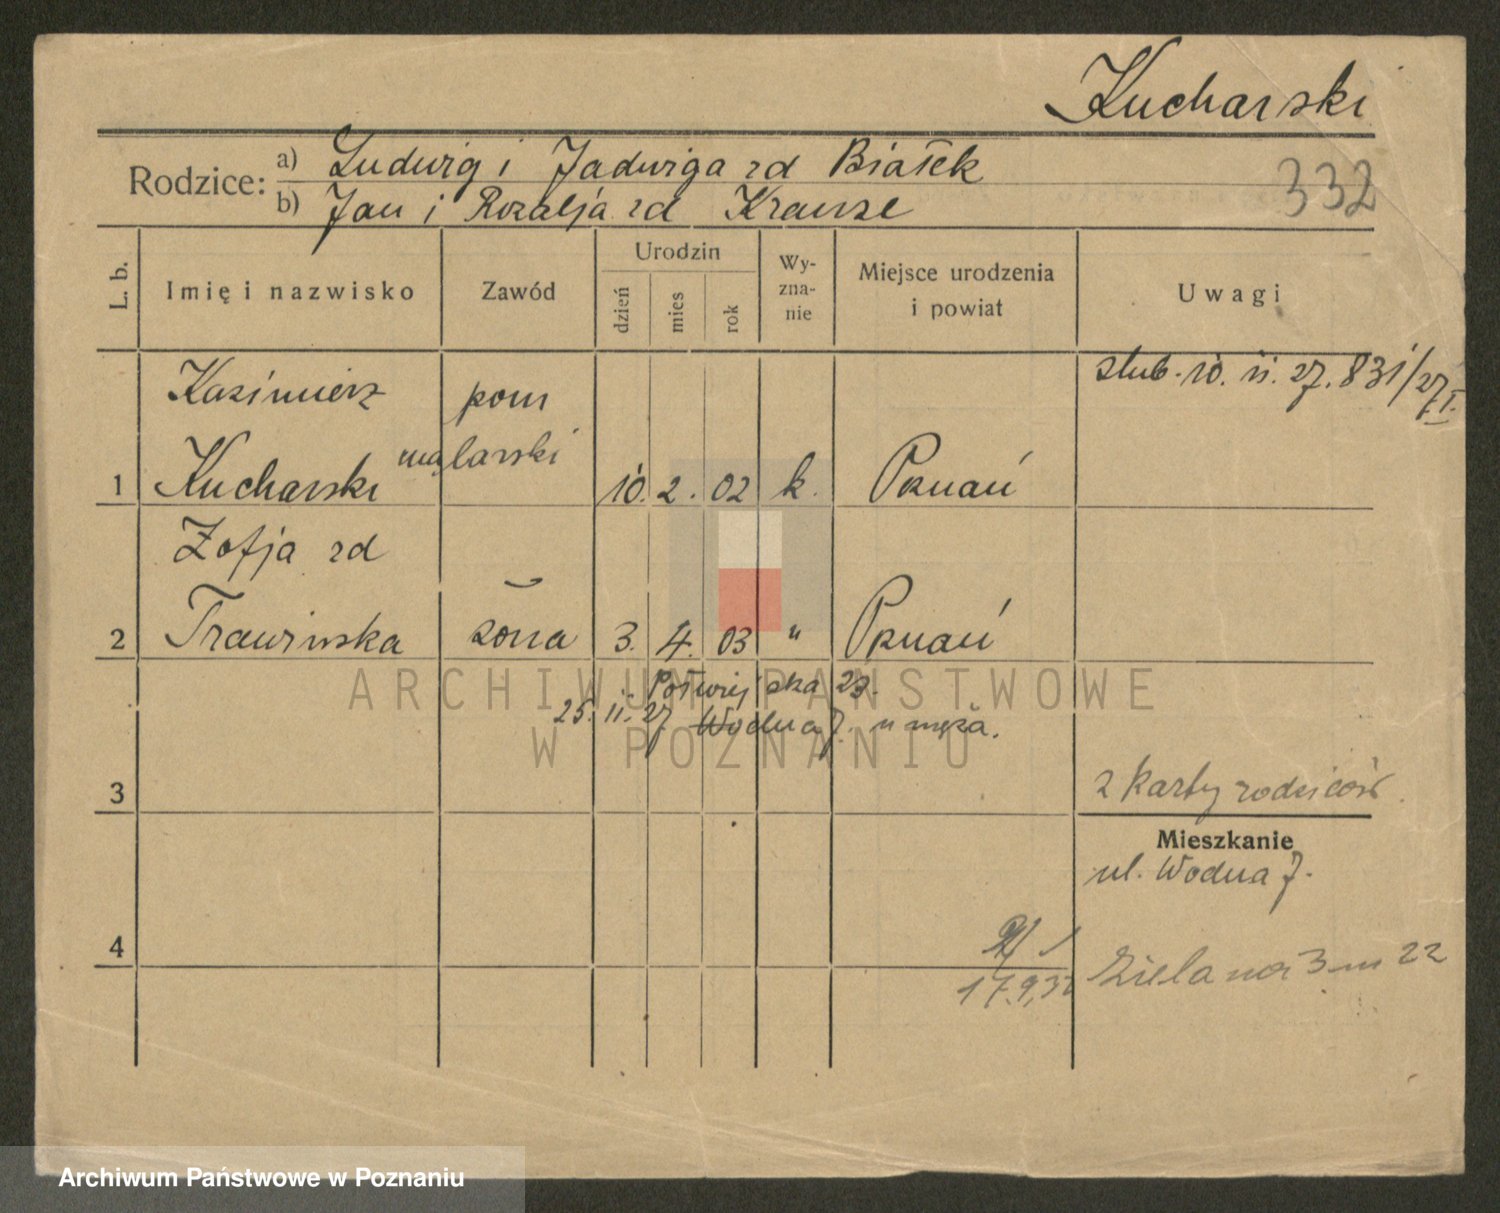 Kucharski
Rodzice: a) Ludwig i Jadwiga zd Białek
332
b) Jan i Rozalja zd Krause
L. b.
Imię i nazwisko
Zawód
Urodzin
dzień
mies
rok
Wy-
zna-
nie
Miejsce urodzenia
i powiat
Uwagi
ślub. 10. 11. 27. 831/27 I.
Kazimierz
pom
malarski
1 Kucharski 10. 2. 02 k. Poznań
Zofja zd
2 Trawinska żona 3. 4. 03 " Poznań
ARCHIWUM PAŃSTWOWE
W POZNANIU
Półwiejska 23.
25. 11. 27 Wodna 7. u męża.
3
2 karty rodziców
Mieszkanie
ul. Wodna 7.
4
17.9.32
Zielona 3 m 22
Archiwum Państwowe w Poznaniu